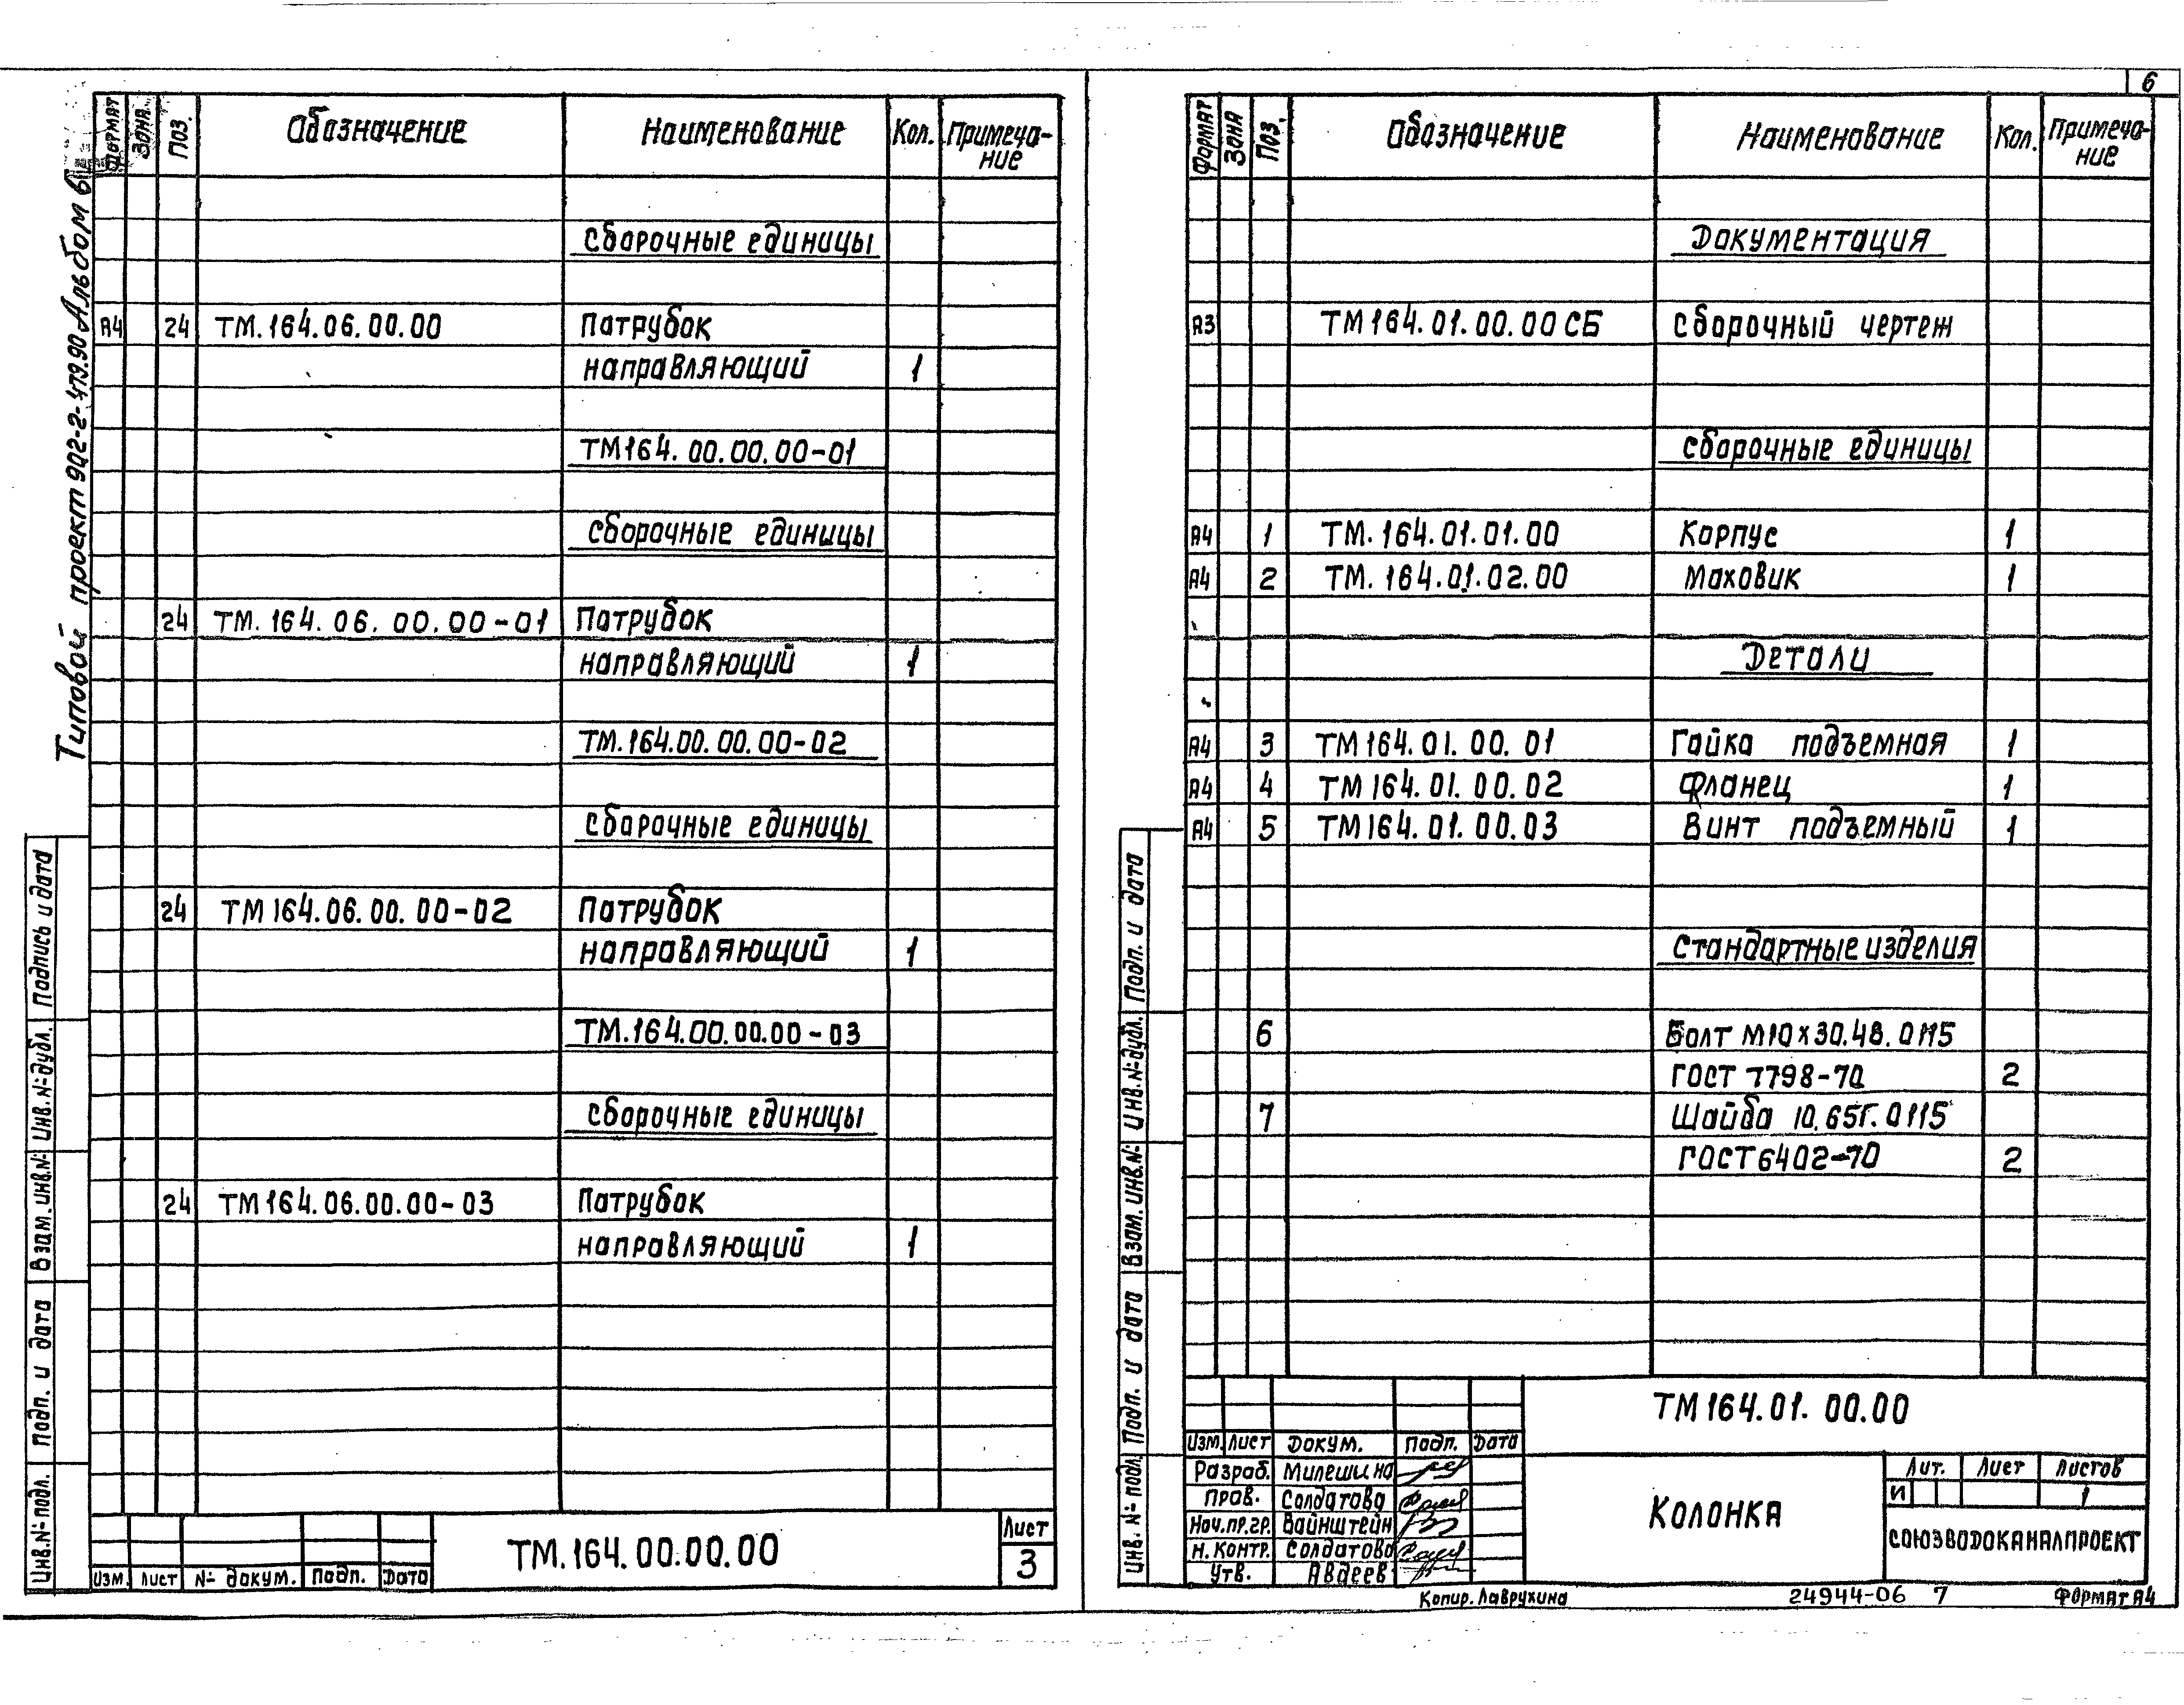 6
Типовой проект 902-2-479.90 Альбом 6
Формат Зона Поз. Обозначение Наименование Кол. Примеча-
ние
Сборочные единицы
А4 24 ТМ.164.06.00.00 Патрубок
направляющий 1
ТМ164.00.00.00-01
Сборочные единицы
24 ТМ.164.06.00.00-01 Патрубок
направляющий 1
ТМ.164.00.00.00-02
Сборочные единицы
24 ТМ164.06.00.00-02 Патрубок
направляющий 1
ТМ.164.00.00.00-03
Сборочные единицы
24 ТМ164.06.00.00-03 Патрубок
направляющий 1
Инв.№ подл. Подп. и дата Взам.инв.№ Инв.№ дубл. Подпись и дата
Изм. Лист № докум. Подп. Дата
ТМ.164.00.00.00
Лист
3
Формат Зона Поз. Обозначение Наименование Кол. Примеча-
ние
Документация
А3 ТМ164.01.00.00СБ Сборочный чертеж
Сборочные единицы
А4 1 ТМ.164.01.01.00 Корпус 1
А4 2 ТМ.164.01.02.00 Маховик 1
Детали
А4 3 ТМ164.01.00.01 Гайка подъемная 1
А4 4 ТМ164.01.00.02 Фланец 1
А4 5 ТМ164.01.00.03 Винт подъемный 1
Стандартные изделия
6 Болт М10х30.48.0115
ГОСТ 7798-70 2
7 Шайба 10.65Г.0115
ГОСТ6402-70 2
Инв.№ подл. Подп. и дата Взам.инв.№ Инв.№ дубл. Подп. и дата
ТМ164.01.00.00
Изм. Лист Докум. Подп. Дата
Разраб. Милешина
Пров. Солдатова
Нач.пр.гр. Вайнштейн
Н.контр. Солдатова
Утв. Авдеев
Колонка
Лит. Лист Листов
И 1
СОЮЗВОДОКАНАЛПРОЕКТ
Копир. Лаврухина 24944-06 7 Формат А4